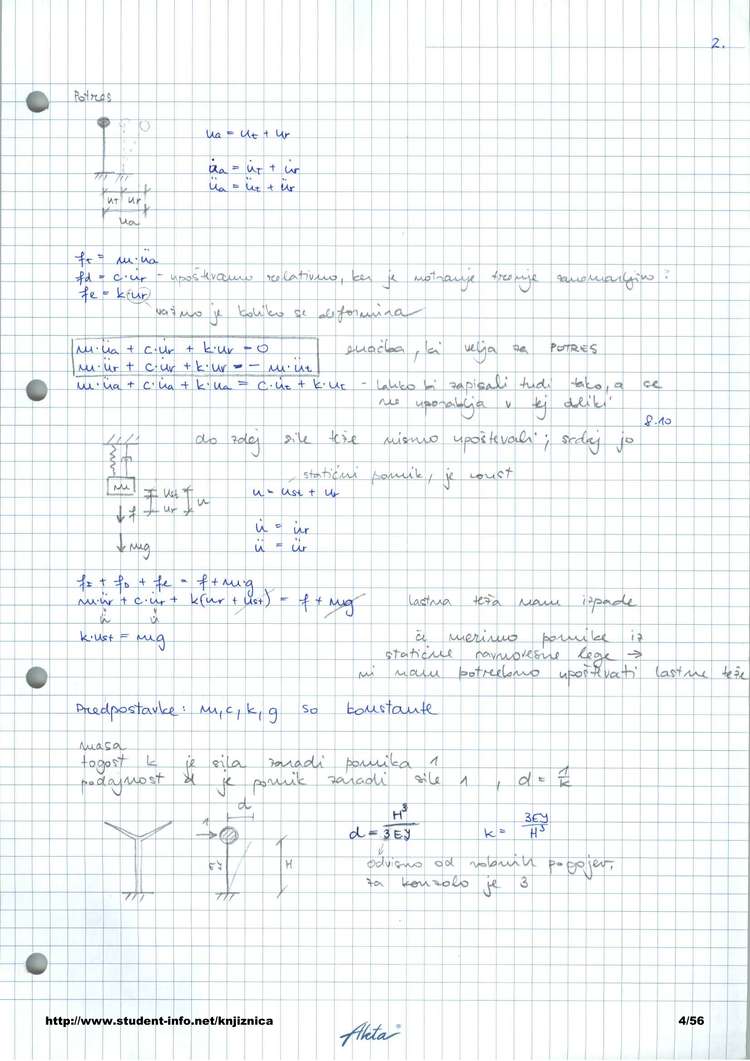 2.
Potres
ua = ut + ur
u̇a = u̇t + u̇r
üa = üt + ür
ut ur
ua
fI = m·üa
fd = c·u̇r - upoštevamo relativno, ker je notranje trenje zanemarljivo!
fe = k·ur
važno je koliko se deformira
m·üa + c·u̇r + k·ur = 0 enačba, ki velja za POTRES
m·ür + c·u̇r + k·ur = - m·üt
m·üa + c·u̇a + k·ua = c·u̇t + k·ut - lahko bi zapisali tudi tako, a se
ne uporablja v tej obliki
8.10
do zdaj sile teže nismo upoštevali; sedaj jo
statični pomik, je const
m ust u u = ust + ur
f ur
u̇ = u̇r
mg ü = ür
fI + fD + fe = f + m·g
m·ür + c·u̇r + k(ur + ust) = f + mg lastna teža nam izpade
ü u̇
k·ust = mg če merimo pomike iz
statične ravnovesne lege →
ni nam potrebno upoštevati lastne teže
Predpostavke: m, c, k, g so konstante
masa
togost k je sila zaradi pomika 1
podajnost d je pomik zaradi sile 1 , d = 1/k
d
1 d = H³/3EJ k = 3EJ/H³
EJ H odvisno od robnih pogojev,
za konzolo je 3
http://www.student-info.net/knjiznica 4/56
Akta